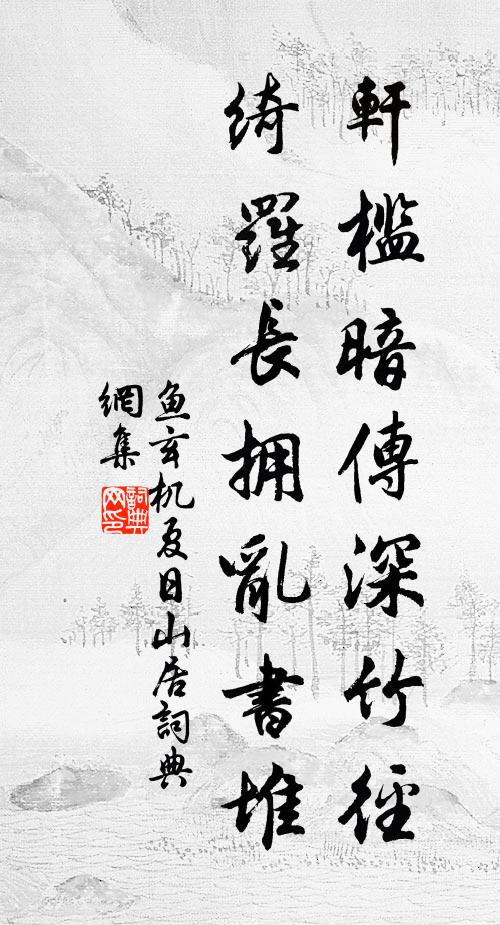 軒檻暗傳深竹徑
綺羅長擁亂書堆
鱼玄机夏日山居詞典
網集
詞典
网印